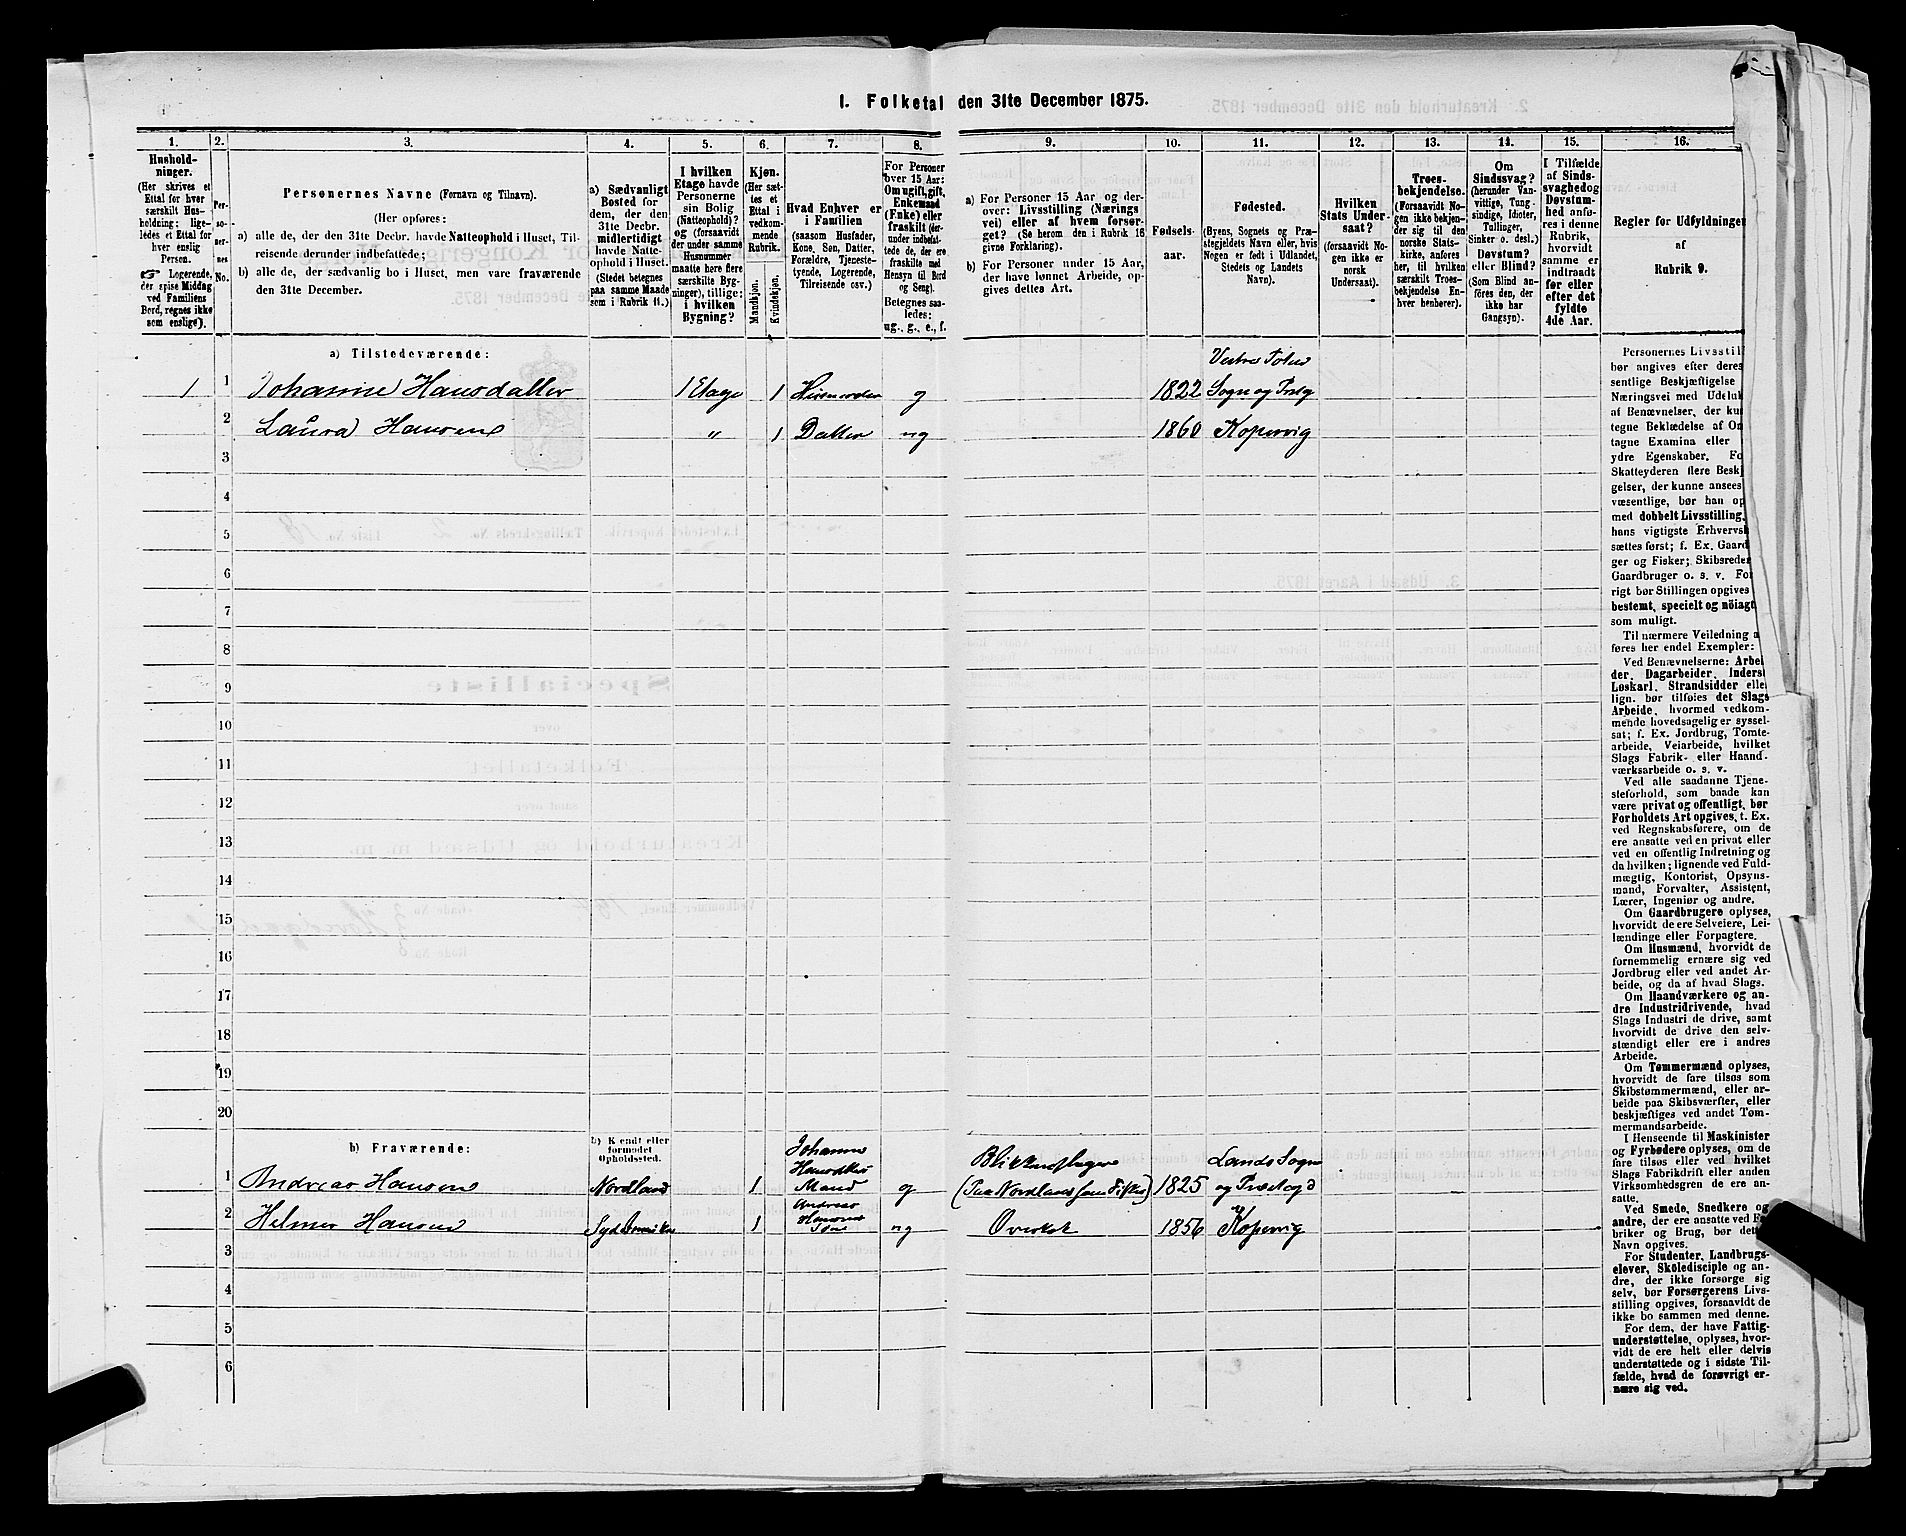 1. Folketal den 31te December 1875.
1.
2.
3.
4.
5.
6.
7.
8.
9.
10.
11.
12.
13.
14.
15.
16.
Hushold-
ninger.
(Her skrives et
Ettal for hver
særskilt Hus-
holdning; lige-
ledes et Ettal for
hver enslig
Person.
☞ Logerende,
der spise Middag
ved Familiens
Bord, regnes ikke
som enslige).
Per-
so-
ner-
nes
No.
Personernes Navne (Fornavn og Tilnavn).
(Her opføres:
a) alle de, der den 31te Decbr. havde Natteophold i Huset, Til-
reisende derunder indbefattede;
b) alle de, der sædvanlig bo i Huset, men vare fraværende
den 31te December.
a) Sædvanligt
Bosted for
dem, der den
31te Decbr.
midlertidigt
havde Natte-
ophold i Huset.
(Stedet betegnes
paa samme Maade
som i Rubrik 11.)
I hvilken
Etage havde
Personerne
sin Bolig
(Natteophold)?
og (forsaavidt
der under samme
Husnummer
maatte høre flere
særskilte Byg-
ninger), tillige:
i hvilken
Bygning?
Kjøn.
(Her sæt-
tes et
Ettal i
vedkom-
mende
Rubrik.
Mandkjøn.
Kvindekjøn.
Hvad Enhver er
i Familien
(saasom Husfader,
Kone, Søn, Datter,
Forældre, Tjeneste-
tyende, Logerende,
Tilreisende osv.)
For Personer
over 15 Aar:
Om ugift, gift,
Enkemand
(Enke) eller
fraskilt (der-
under indbefat-
tede de, der ere
fraskilte med
Hensyn til Bord
og Seng).
Betegnes saa-
ledes:
ug., g., e., f.
a) For Personer 15 Aar og der-
over: Livsstilling (Nærings-
vei) eller af hvem forsør-
get? (Se herom den i Rubrik 16
givne Forklaring).
b) For Personer under 15 Aar,
der have lønnet Arbeide, op-
gives dettes Art.
Fødsels-
aar.
Fødested.
(Byens, Sognets og Præ-
stegjeldets Navn eller, hvis
Nogen er født i Udlandet,
Stedets og Landets
Navn).
Hvilken
Stats Under-
saat?
(forsaavidt No-
gen ikke er
norsk
Undersaat).
Troes-
bekjendelse.
(Forsaavidt No-
gen ikke bekjen-
der sig til den
norske Stats-
kirke, anføres
her, til hvilken
særskilt Troes-
bekjendelse En-
hver henhører).
Om
Sindssvag?
(herunder Van-
vittige, Tung-
sindige, Idioter,
Tullinger,
Sinker o. desl.)
Døvstum?
eller Blind?
(Som Blind an-
føres den, der
ikke har
Gangsyn).
I Tilfælde
af Sinds-
svaghedog
Døvstum-
hed anfø-
res i denne
Rubrik,
hvorvidt
samme er
indtraadt
før eller
efter det
fyldte
4de Aar.
Regler for Udfyldningen
af
Rubrik 9.
a) Tilstedeværende:
1 1 Johanne Hansdatter 1 Etage 1 g 1822 Vestre Toten
Sogn og Præg
2 Laura Hansen " 1 Datter ug 1860 Kopervig
3
4
5
6
7
8
9
10
11
12
13
14
15
16
17
18
19
20
b) Fraværende:
b) Kendt eller
formodet
Opholdssted.
1 Andreas Hansen Nordland 1 Johanne
Hansdatter
Mand g (Paa Nordland som Fisker) 1825 Lands Sogn
og Præstegd
2 Helmer Hansen Sydamerika 1 Andreas
Hansens
Søn ug 1856 Kopervig
3
4
5
6
Personernes Livsstil
bør angives efter deres
sentlige Beskjæftigelse
Næringsvei med Udeluk
af Benævnelser, der kun
tegne Beklædelse af Om
tagne Examina eller
ydre Egenskaber. Fo
Skatteyderen flere Beskj
gelser, der kunne ansees
væsentlige, bør han op
med dobbelt Livsstilling,
hans vigtigste Erhvervsk
sættes først; f. Ex. Gaard
ger og Fisker; Skibsreder
Gaardbruger o. s. v. For
rigt bør Stillingen opgives
bestemt, specielt og nöiagt
som muligt.
Til nærmere Veiledning a
føres her endel Exempler:
Ved Benævnelserne: Arbei
der, Dagarbeider, Inders
Løskarl, Strandsidder elle
lign. bør tilføies det Slags
Arbeide, hvormed vedkom-
mende hovedsagelig er syssel-
sat; f. Ex. Jordbrug, Tomte-
arbeide, Veiarbeide, hvilket
Slags Fabrik- eller Haand-
værksarbeide o. s. v.
Ved alle saadanne Tjene-
steforhold, som baade kan
være privat og offentligt, bør
Forholdets Art opgives, t. Ex.
ved Regnskabsførere, om de
ere ansatte ved en privat eller
ved en offentlig Indretning og
da hvilken; lignende ved Fuld-
mægtig, Kontorist, Opsyns-
mand, Forvalter, Assistent,
Lærer, Ingeniør og andre.
Om Gaardbrugere oplyses,
hvorvidt de ere Selveiere, Lei-
lændinge eller Forpagtere.
Om Husmænd, hvorvidt de
fornemmelig ernære sig ved
Jordbrug eller ved andet Ar-
beide, og da af hvad Slags.
Om Haandværkere og an-
dre Industridrivende, hvad
Slags Industri de drive, samt
hvorvidt de drive den selv-
stændigt eller ere i andres
Arbeide.
Om Tømmermænd oplyses,
hvorvidt de fare tilsøs som
Skibstømmermænd, eller ar-
beide paa Skibsværfter, eller
beskjæftiges ved andet Tøm-
mermandsarbeide.
I Henseende til Maskinister
og Fyrbødere oplyses, om de
fare tilsøs eller ved hvilket
Slags Fabrikdrift eller anden
Virksomhedsgren de ere an-
satte.
Ved Smede, Snedkere og
andre, der ere ansatte ved Fa
briker og Brug, bør dette
Navn opgives.
For Studenter, Landbrugs-
elever, Skoledisciple og an-
dre, der ikke forsørge sig
selv, bør Forsørgerens Livs-
stilling opgives, forsaavidt de
ikke bo sammen med denne.
For dem, der have Fattig-
understøttelse, oplyses, hvor-
vidt de ere helt eller delvis
understøttede og i sidste Til-
fælde, hvad de forøvrigt er-
nære sig ved.